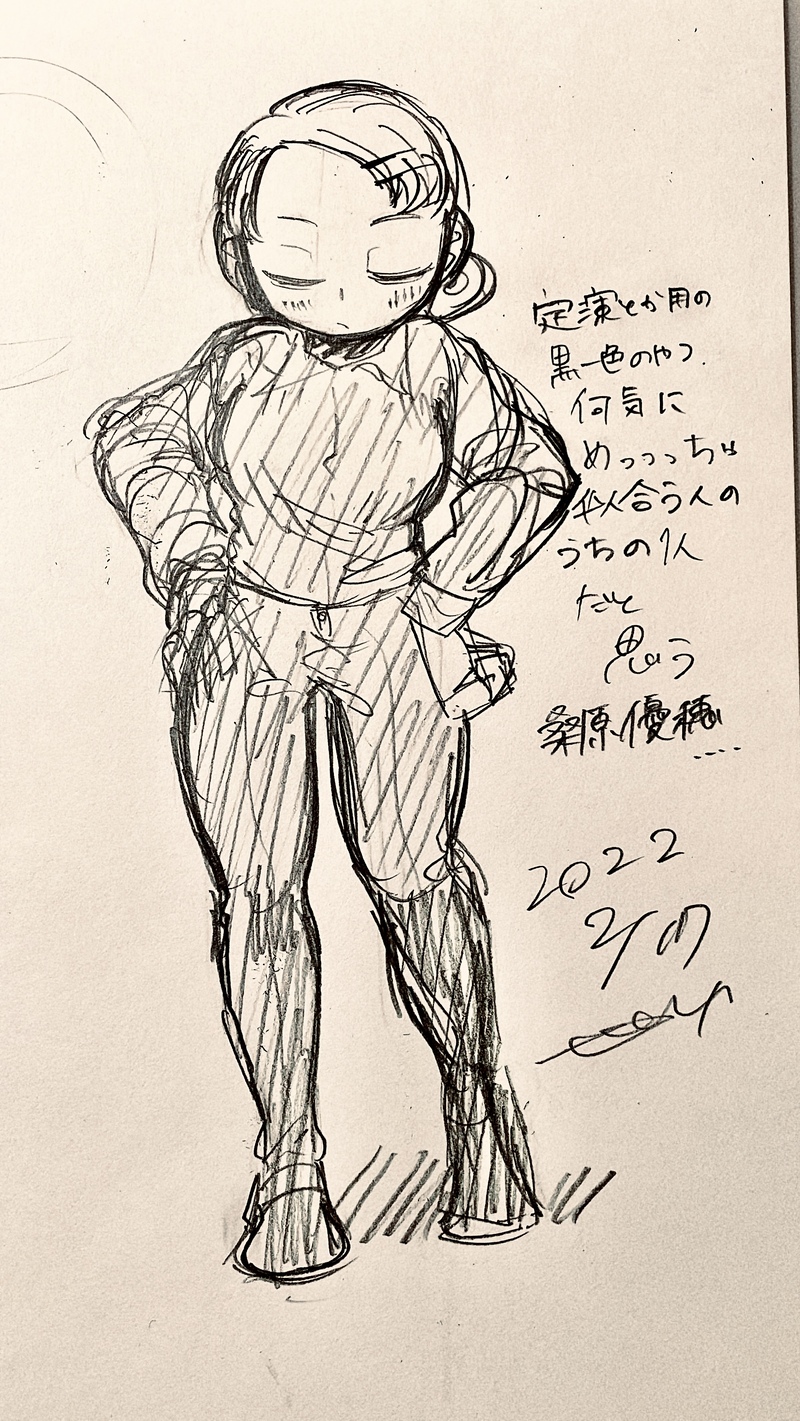 定演とか用の
黒一色のやつ.
何気に
めっっっちゃ
似合う人の
うちの1人
だと
思う
桑原優穂
....
2022
2/17